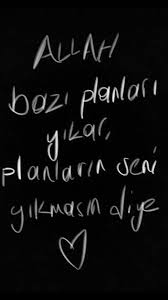 ALLAH
bazı planları
yıkar,
planların seni
yıkmasın diye